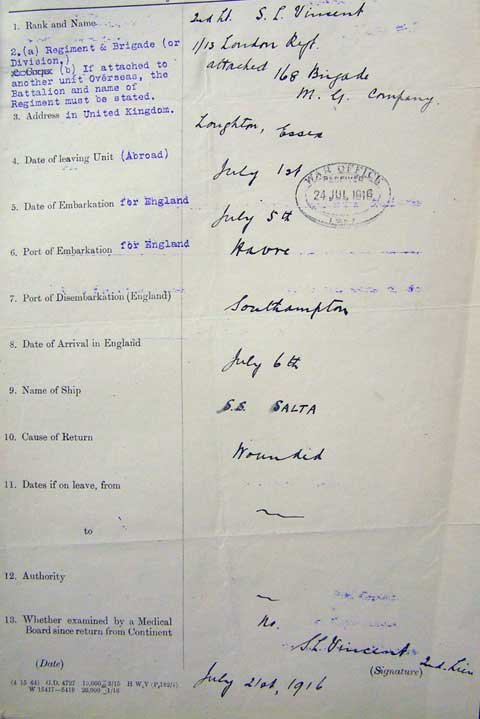 1. Rank and Name 2nd Lt. S. L. Vincent
2.(a) Regiment & Brigade (or 1/13 London Regt.
Division,)
or Corps (b) If attached to attached 168 Brigade
another unit Overseas, the
Battalion and name of M. G. Company.
Regiment must be stated.
3. Address in United Kingdom. Loughton, Essex
4. Date of leaving Unit (Abroad) July 1st
WAR OFFICE
RECEIVED
24 JUL 1916
5. Date of Embarkation for England July 5th
6. Port of Embarkation for England Havre
7. Port of Disembarkation (England) Southampton
8. Date of Arrival in England July 6th
9. Name of Ship S.S. SALTA
10. Cause of Return Wounded
11. Dates if on leave, from —
to
12. Authority —
13. Whether examined by a Medical No.
Board since return from Continent
S.L. Vincent 2nd. Lieu
(Date) (Signature)
July 21st, 1916
(4 15 64) G.D. 4727 15,000 2/15 H W V
W 15417—5419 20,000 1/16